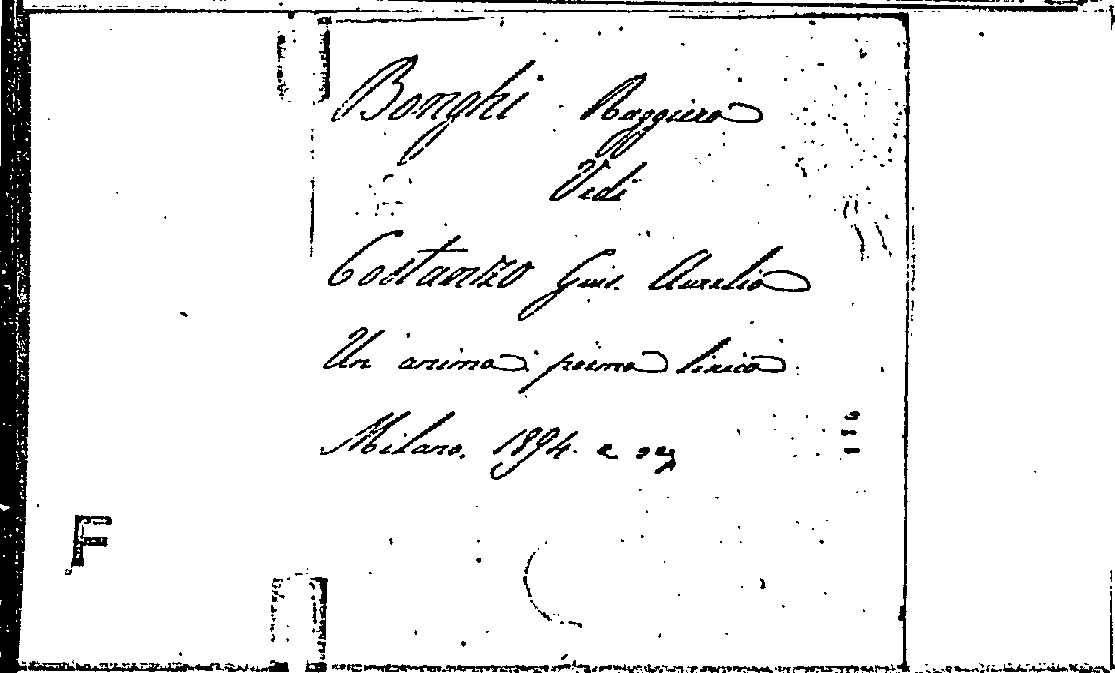 Bonghi Ruggiero
Vedi
Costanzo Gius. Aurelio
Un anima: poema lirico.
Milano, 1894. e seg
F